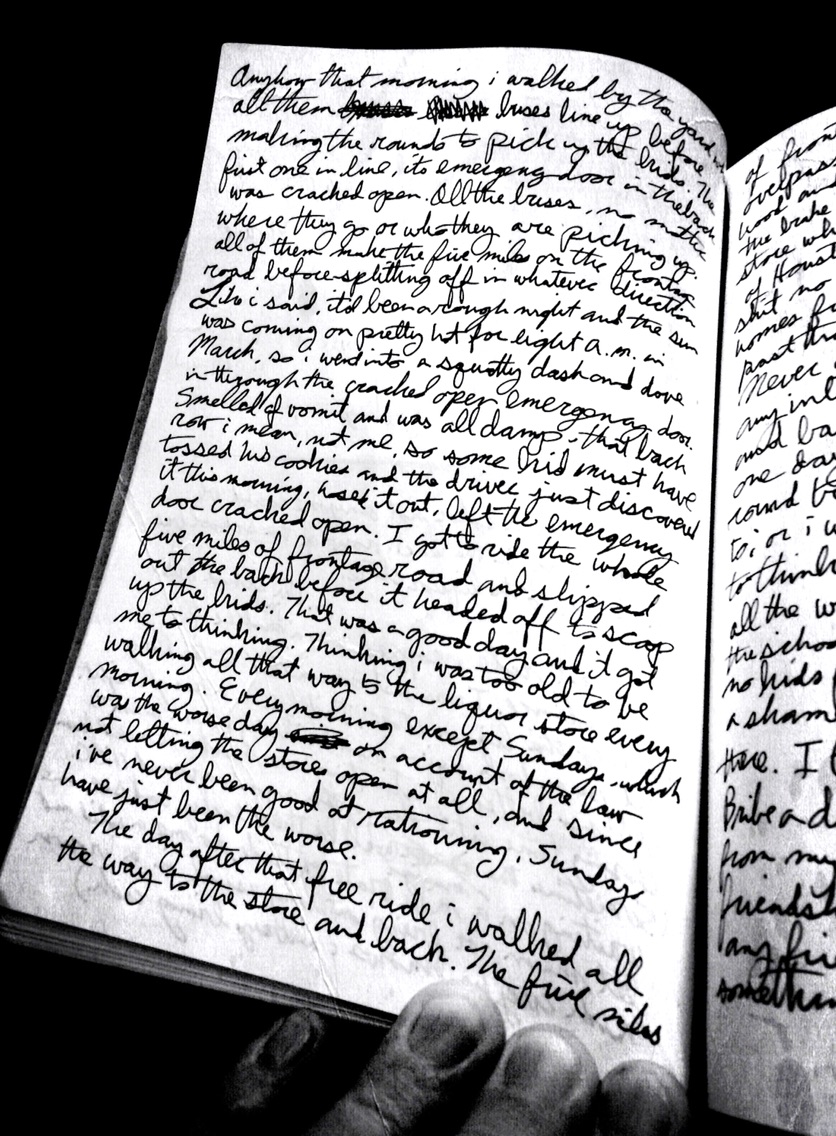 Anyhow that morning i walked by the yard w
all them buses line up before
making the rounds to pick up the kids. The
first one in line, its emergeng door in the back
was cracked open. All the buses, no matter
where they go or who they are picking up,
all of them make the five miles on the frontag
road before splitting off in whatever direction
Like i said, it'd been a rough night and the sun
was coming on pretty hot for eight a.m. in
March, so i went into a squatty dash and dove
in through the cracked open emergency door.
Smelled of vomit and was all damp, that back
row i mean, not me, so some kid must have
tossed his cookies and the driver just discovered
it this morning, hosed it out, left the emergency
door cracked open. I got to ride the whole
five miles of frontage road and slipped
out the back before it headed off to scoop
up the kids. That was a good day and it got
me to thinking. Thinking i was too old to be
walking all that way to the liquor store every
morning. Every morning except Sundays, which
was the worse day on account of the law
not letting the stores open at all, and since
i've never been good at rationing, Sundays
have just been the worse.
The day after that free ride i walked all
the way to the store and back. The five miles
of fron
overpass
wood and
the brake
store wh
of Houst
shit no
comes fr
past th
Never
any inl
and ba
one day
round t
to, or i w
to think
all the w
the schoo
no kids
a sham
there. I
Bribe a d
from my
friends
any fiv
somethin